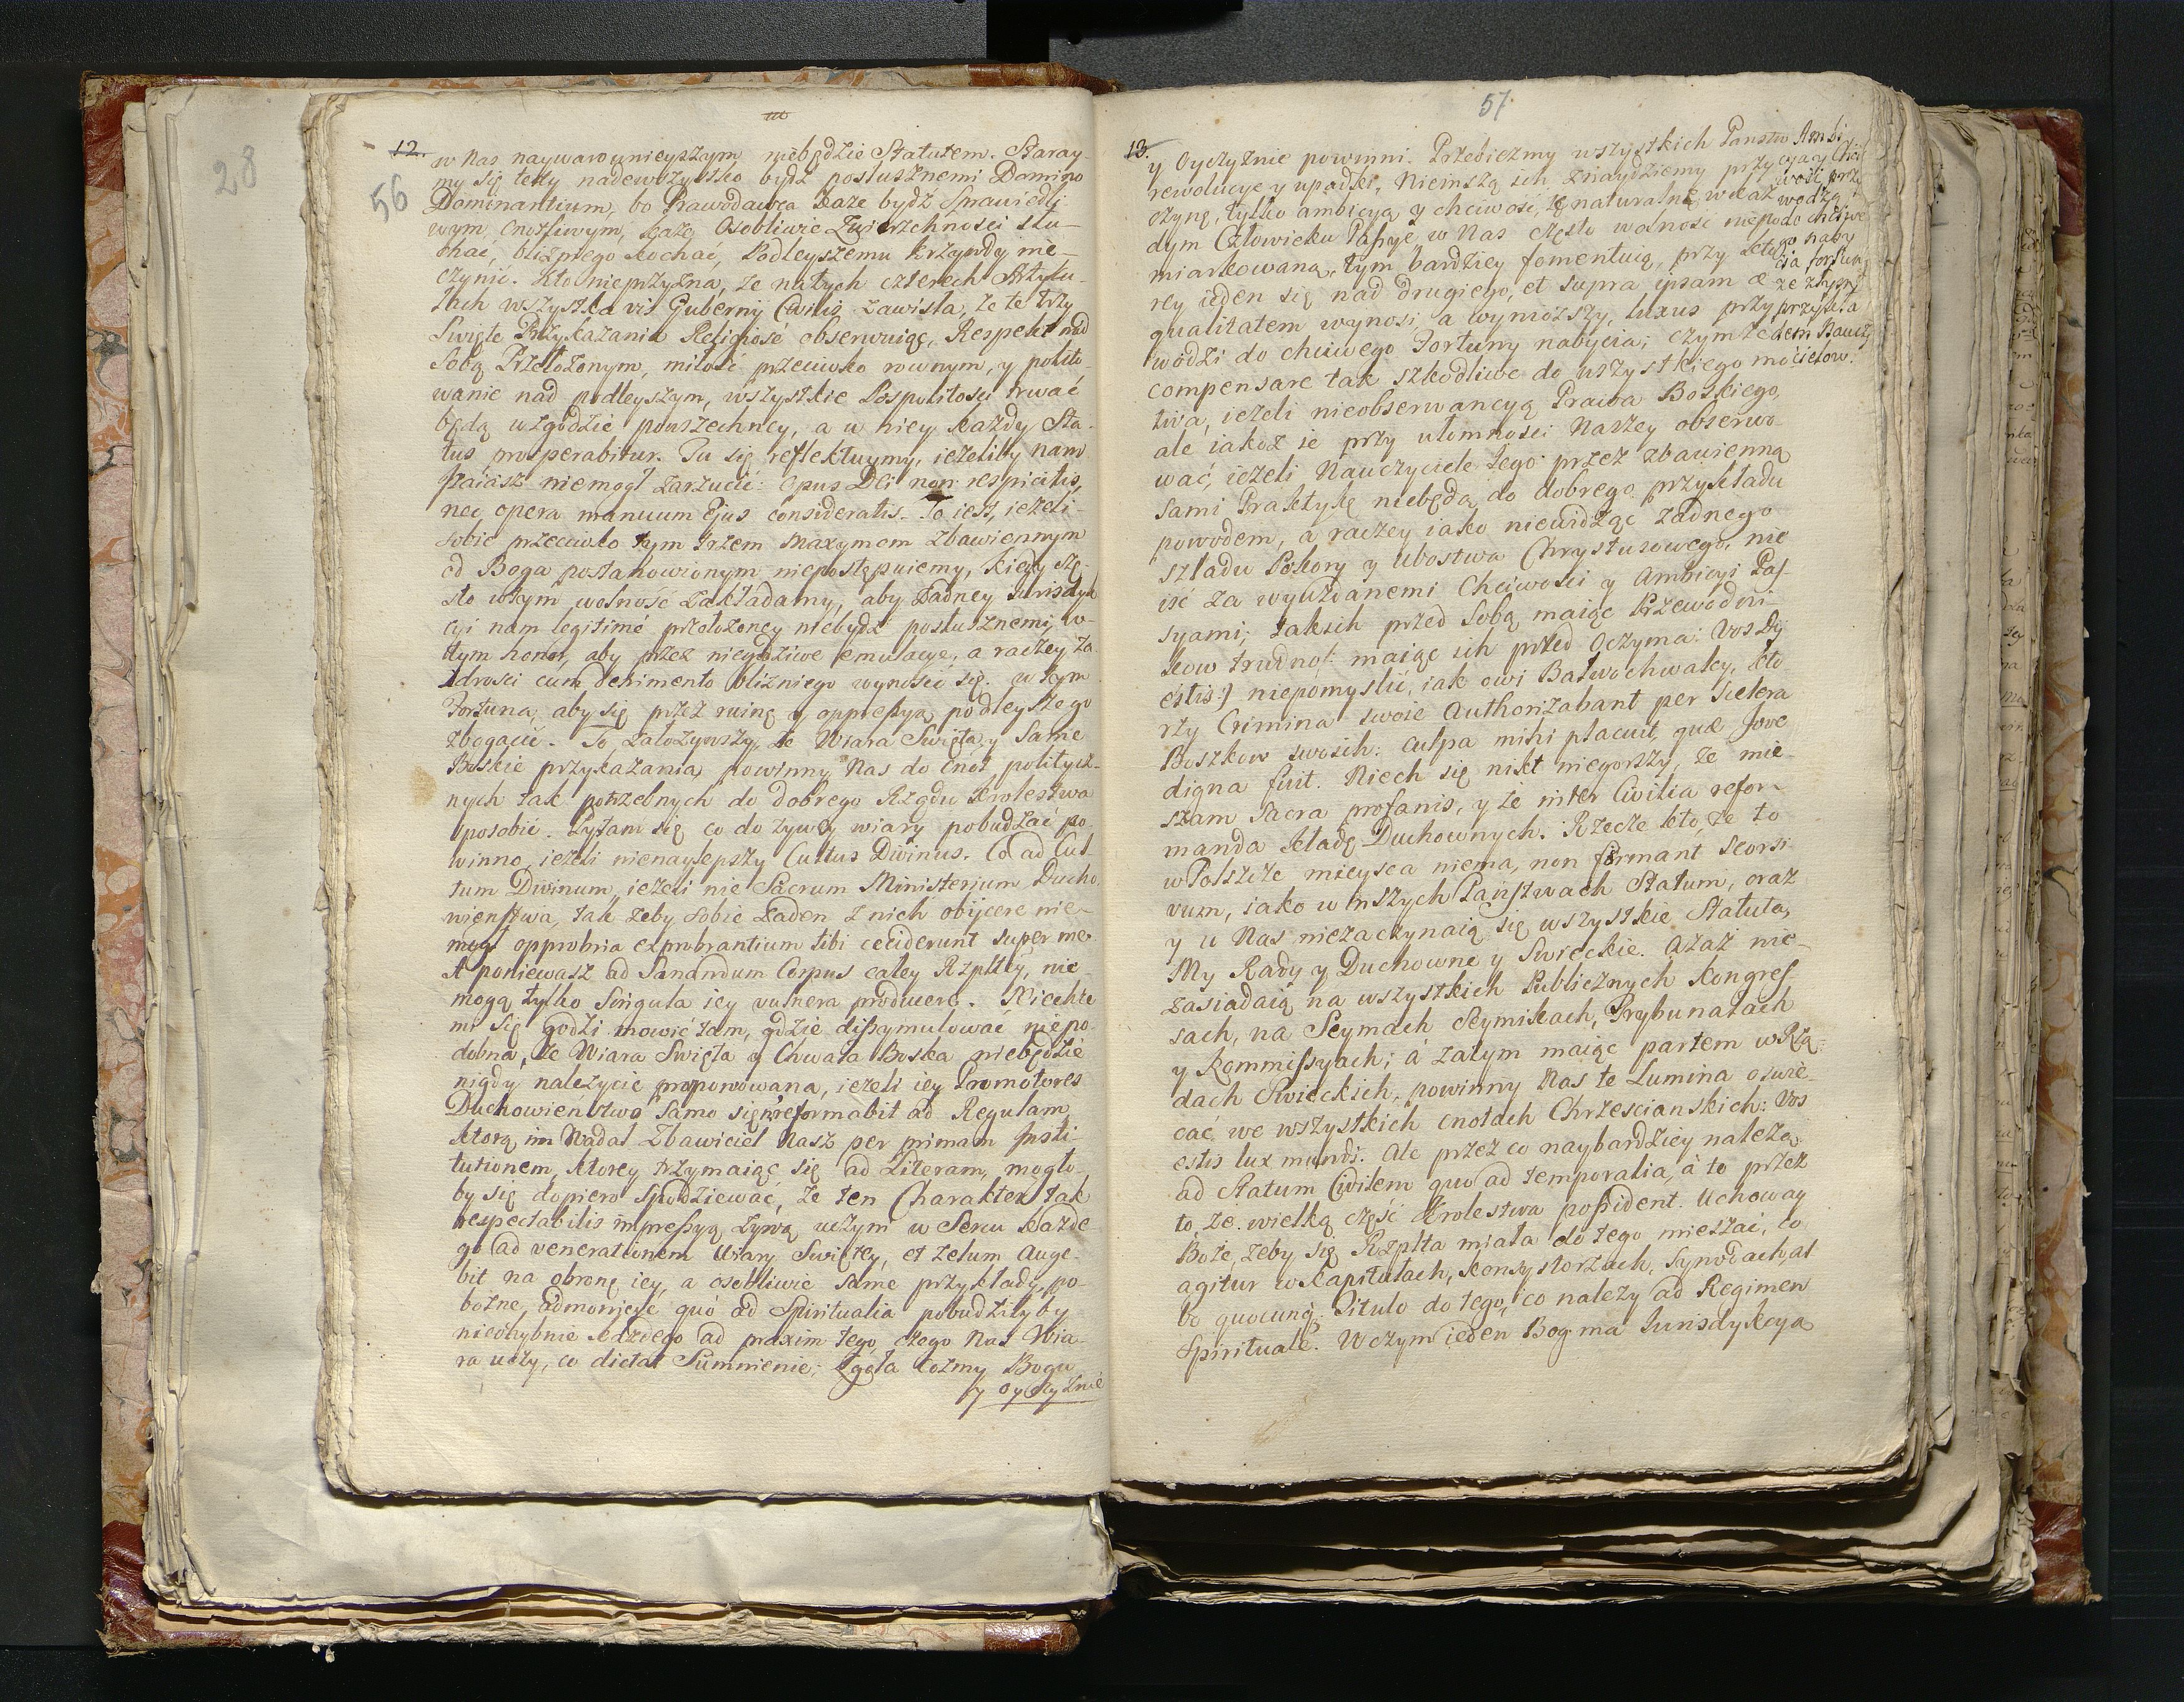 28
56
12.
w nas naywarownieyszym niebędzie Statutem. Staray-
my się tedy nadewszystko bydź posłusznemi Domino
Dominantium, bo Prawodawca każe bydź Sprawiedli-
wym, cnotliwym, każe Osobliwie Zwierzchności słu-
chać, bliźniego kochać, Podleyszemu krzywdy nie-
czynić. Kto nieprzyzna, że natych czterech Artyku-
łach wszystka vis Guberny Civilis zawisła, że te trzy
Swięte Przykazania Religiosé obserwuiąc, Respekt nad
Sobą Przełożonym, miłość przeciwko rownym, y polito-
wanie nad podleyszym, wszystkie Pospolitości trwać
będą wzgodzie powszechney, a w niey każdy Sta-
tus prosperabitur. Tu się reflektuymy, ieżeliby nam
Izaiasz niemogł zarzucić: Opus Dei non respicitis,
nec opera manuum Ejus consideratis. To iest, ieżeli
sobie przeciwko tym trzem Maxymom zbawiennym
od Boga postanowionym niepostępuiemy, kiedy czę-
sto wtym wolność zakładamy, aby Żadney Jurisdyk
cyi nam legitimé przełożoney niebydź posłusznemi, w-
tym honor, aby przez niegodziwe emulacye, a raczey za
zdrości cum detrimento bliźniego wynosić się. w tym
Fortuna, aby się przez ruinę y oppressyą podleyszego
zbogacić. To założywszy, że Wiara Swięta, y Same
Boskie przykazania powinny Nas do cnot politycz-
nych tak potrzebnych do dobrego Rządu Krolestwa
sposobić. Pytam się co do żywey wiary pobudzać po-
winno, ieżeli nienaylepszy Cultus Divinus. Co ad Cul-
tum Divinum, ieżeli nie Sacrum Ministerium Ducho-
wieństwa, tak żeby sobie żaden z nich obijcere nie-
mogł opprobria exprobrantium tibi ceciderunt super me.
A ponieważ ad Sanandum Corpus całey Rzpltey, nie-
mogą tylko Singula iey vulnera producere. Niechże
mi się godzi mowić tam, gdzie dissymulować niepo-
dobna, że Wiara Swięta y Chwała Boska niebędzie
nigdy należycie proponowana, ieżeli iey Promotores
Duchowieństwo samo się reformabit ad Regulam
ktorą im Nadał Zbawiciel Nasz per primam Insti-
tutionem, ktorey trzymaiąc się ad Literam, mogło-
by się dopiero spodziewać, że ten Charakter tak
respectabilis impressyą żywą uczyni w Sercu każde-
go ad venerationem Wiary Swiętey, et zelum auge-
bit na obronę iey, a osobliwie same przykłady po-
bożne, quó ad Spiritualia pobudziłyby
niechybnie każdego ad praxim tego, czego Nas Wia-
ra uczy, co dictat Sumnienie; Zgoła cośmy Bogu
y Oyczyznie
57
13.
y Oyczyznie powinni. Przebieżmy wszystkich Państw
rewolucye y upadki, Nieinszą ich znaydziemy przy
czynę, tylko ambicyą y chciwość, tę naturalną w każ
dym Człowieku Passyę, w Nas często wolność niepo
miarkowana, tym bardziey fomentuią, przy kto
rey ieden się nad drugiego, et supra ipsam æ
qualitatem wynosi, a wyniozszy, luxus przy
wodzi do chciwego Fortuny nabycia; czymże
compensare tak szkodliwe do wszystkiego mo
tiva, ieżeli nieobserwancyą Prawa Boskiego,
ale iakoż ie przy ułomności Naszey obserwo-
wać, ieżeli Nauczyciele tego przez zbawienną
sami Praktykę niebędą do dobrego przykładu
powodem, a raczey iako niewidząc żadnego
szladu Pokory y Ubostwa Chrystusowego, nie
iść za wyuzdanemi Chciwości y Ambicyi Pas-
syami; takich przed Sobą maiąc Przewodni
kow trudno /: maiąc ich przed Oczyma: Vos Dij
estis:/ niepomyslić, iak owi Bałwochwalcy, kto
rzy Crimina swoie Authorizabant per scelera
Boszkow swoich: culpa mihi placuit, quæ Jove
digna fuit. Niech się nikt niegorszy, że mie
szam Sacra profanis, y że inter Civilia refor-
manda kładę Duchownych. Rzecze kto, że to
w Polszcze mieysca niema, non formant seorsi
vum, iako w inszych Państwach Statum, oraz
y u Nas niezaczynaią się wszystkie Statuta,
My Rady y Duchowne y Swieckie. Azaż nie-
zasiadaią na wszystkich Publicznych Kongres-
sach, na Seymach Seymikach, Trybunałach
y Kommissyach; á zatym maiąc partem w Rzą-
dach Swieckich, powinny Nas te Lumina oswie-
cać we wszystkich cnotach Chrzescianskich: Vos
estis lux mundi. Ale przez co naybardziey należą
ad Statum Civilem quo ad temporalia, á to przez
to, że wielką część Krolestwa possident. Uchoway
Boże, żeby się Rzplta miała do tego mieszać, co
agitur w Kapitułach, Konsystorzach, Synodach, al
bo quocunq; Titulo do tego, co należy ad Regimen
Spirituale. W czym ieden Bog ma Jurisdykcyą
Ambi
cya y chci
wość prze
wodzą
do chciwe
go naby
cia fortun
ze złym
przykła
dem Nauczy
cielow.